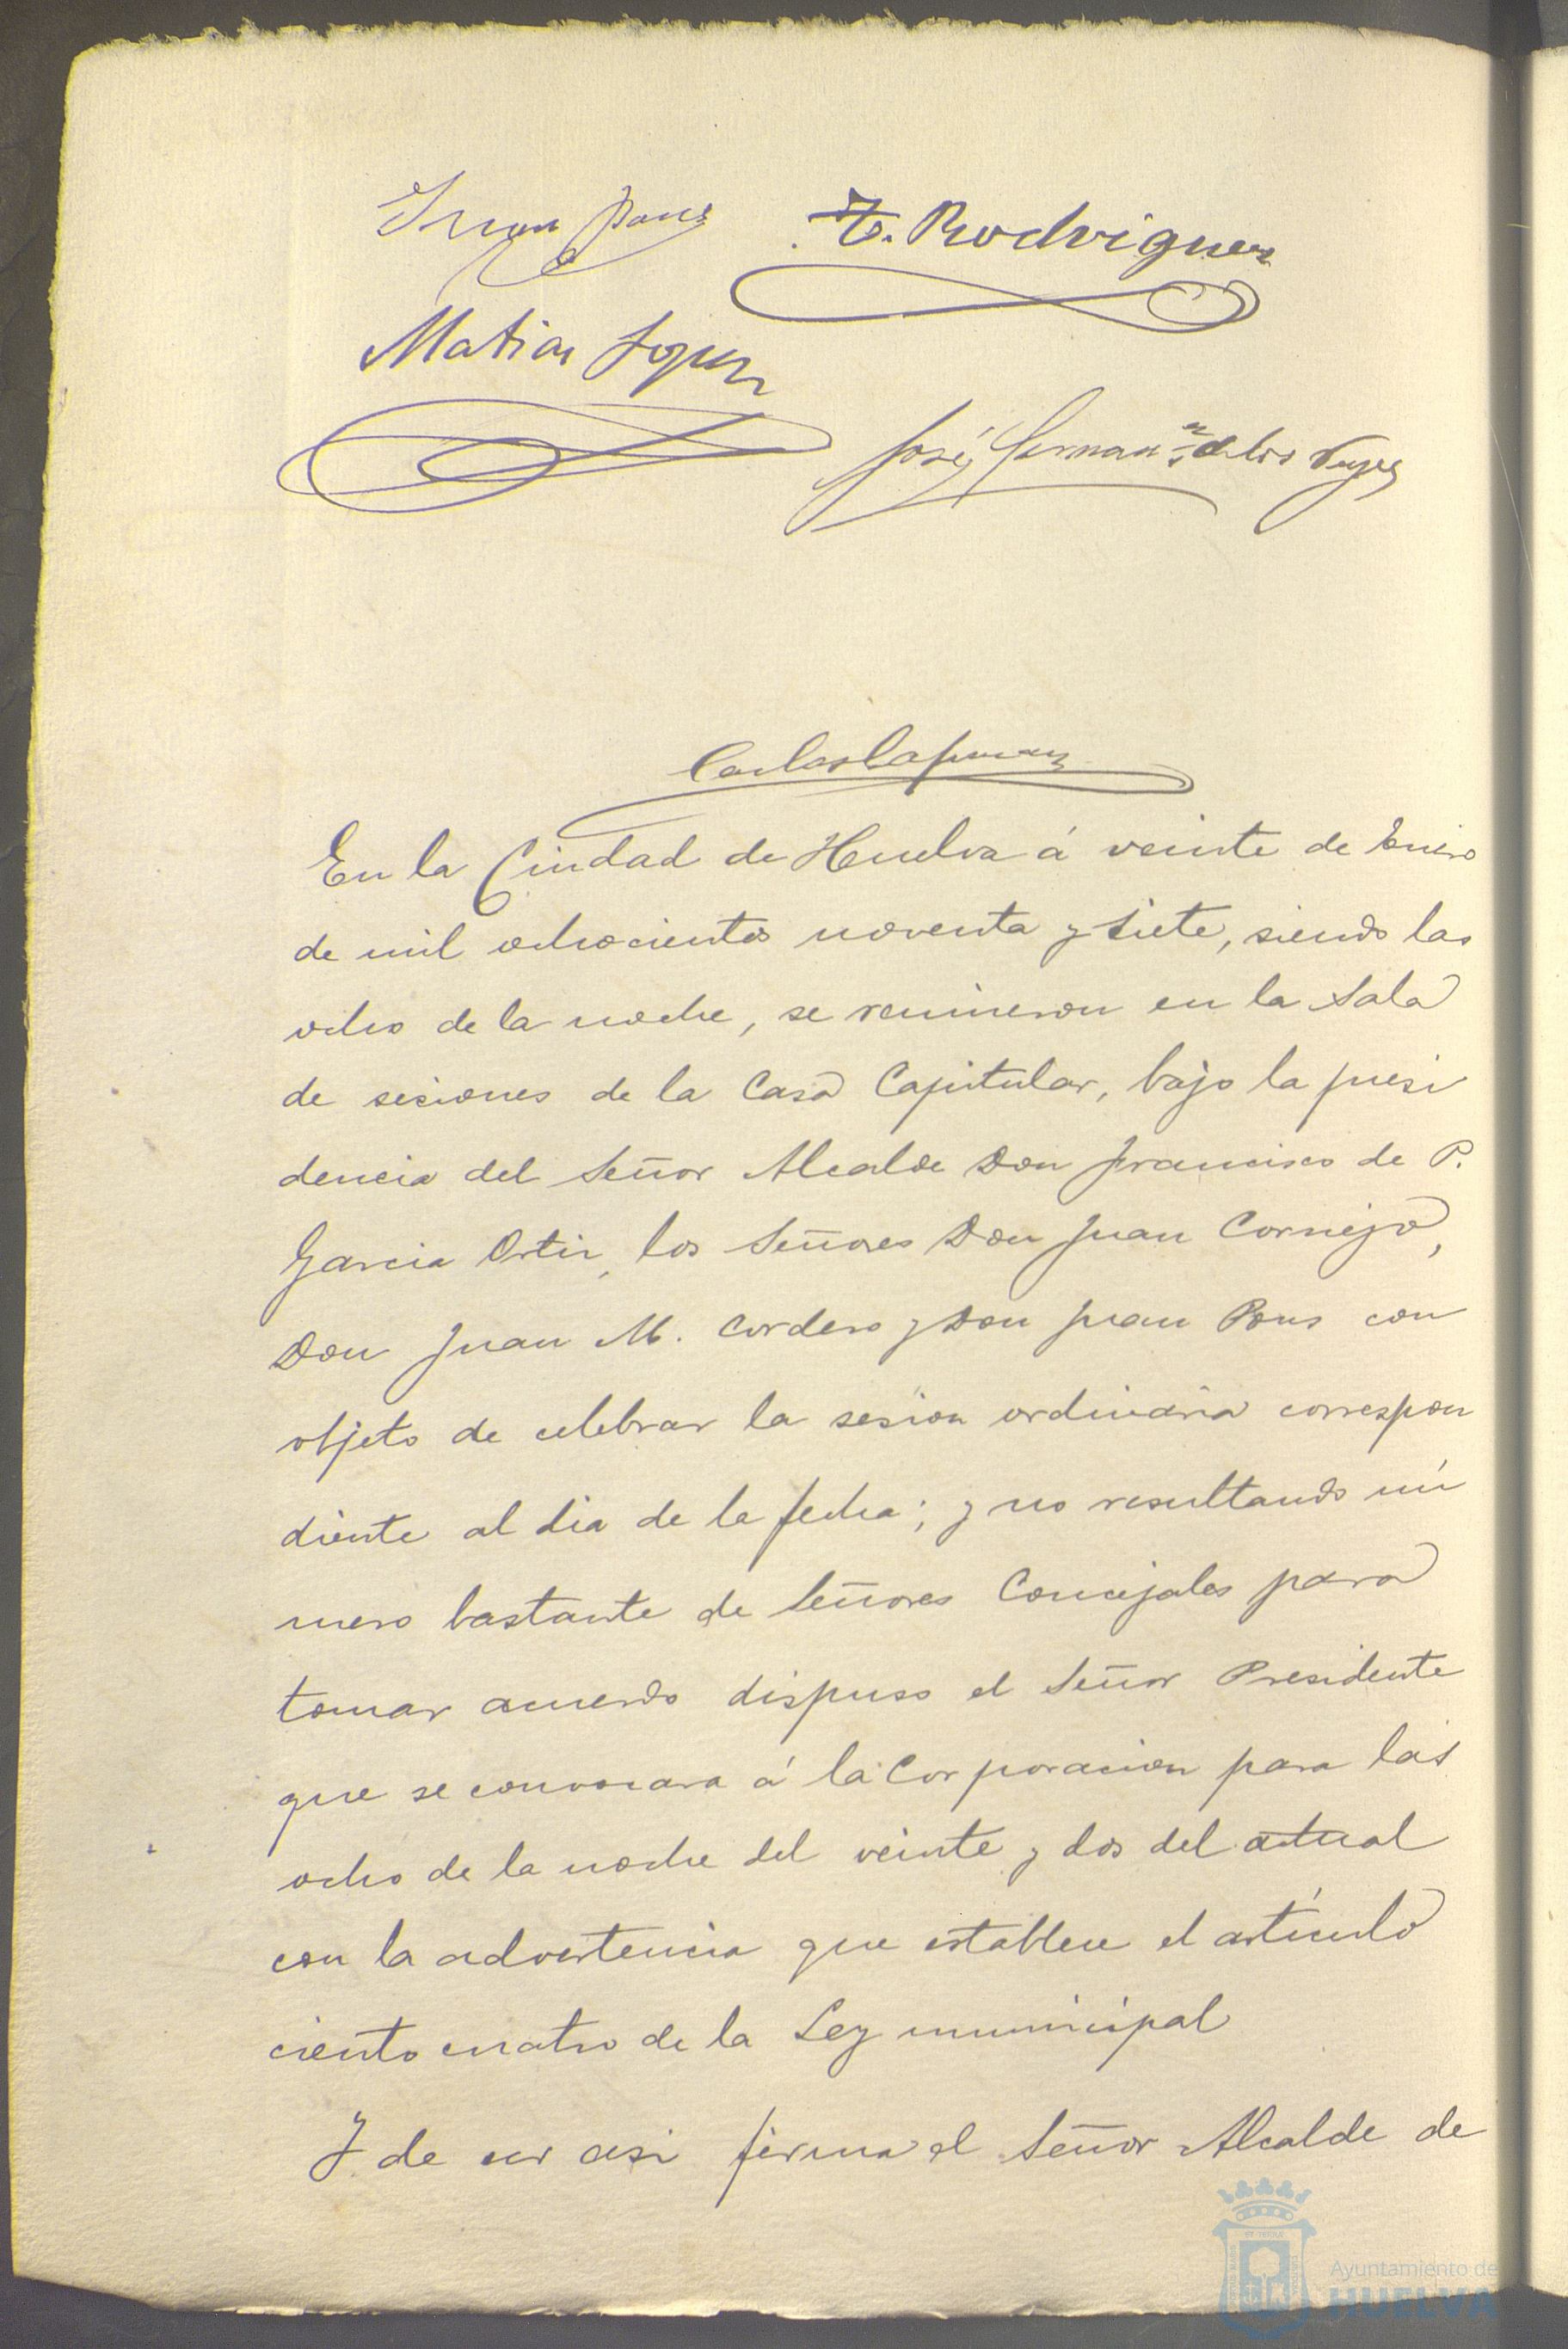 Juan Pons
F. Rodriguez
Matias Lopez
José Fernan.ez de los Reyes
Carlos
En la Ciudad de Huelva á veinte de Enero
de mil ochocientos noventa y siete, siendo las
ocho de la noche, se reunieron en la Sala
de sesiones de la Casa Capitular, bajo la presi
dencia del Señor Alcalde Don Francisco de P.
Garcia Ortiz, los Señores Don Juan Cornejo,
Don Juan M. Cordero y Don Juan Pons con
objeto de celebrar la sesion ordinaria correspon
diente al dia de la fecha; y no resultando nú
mero bastante de Señores Concejales para
tomar acuerdo dispuso el Señor Presidente
que se convocara á la Corporacion para las
ocho de la noche del veinte y dos del actual
con la advertencia que establece el artículo
ciento cuatro de la Ley municipal
Y de ser asi firma el Señor Alcalde de
Ayuntamiento de
HUELVA